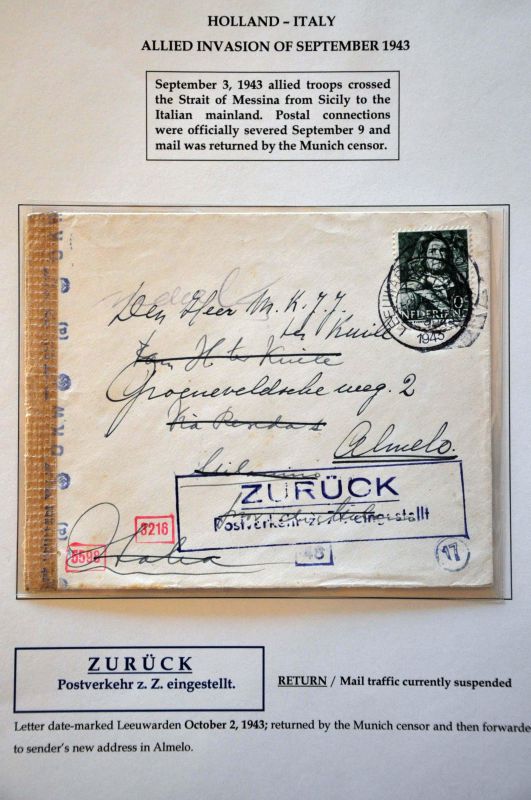 HOLLAND – ITALY
ALLIED INVASION OF SEPTEMBER 1943
September 3, 1943 allied troops crossed
the Strait of Messina from Sicily to the
Italian mainland. Postal connections
were officially severed September 9 and
mail was returned by the Munich censor.
NEDERLAND
1943
Den Heer M. K. J. J.
ter Kuile
Fam H ter Kuile
Groeneveldsche weg. 2
Via
Almelo
ZURÜCK
Postverkehr z. Z. eingestellt
Italia
3216
5598
46
17
ZURÜCK
Postverkehr z. Z. eingestellt.
RETURN / Mail traffic currently suspended
Letter date-marked Leeuwarden October 2, 1943; returned by the Munich censor and then forwarde
to sender's new address in Almelo.